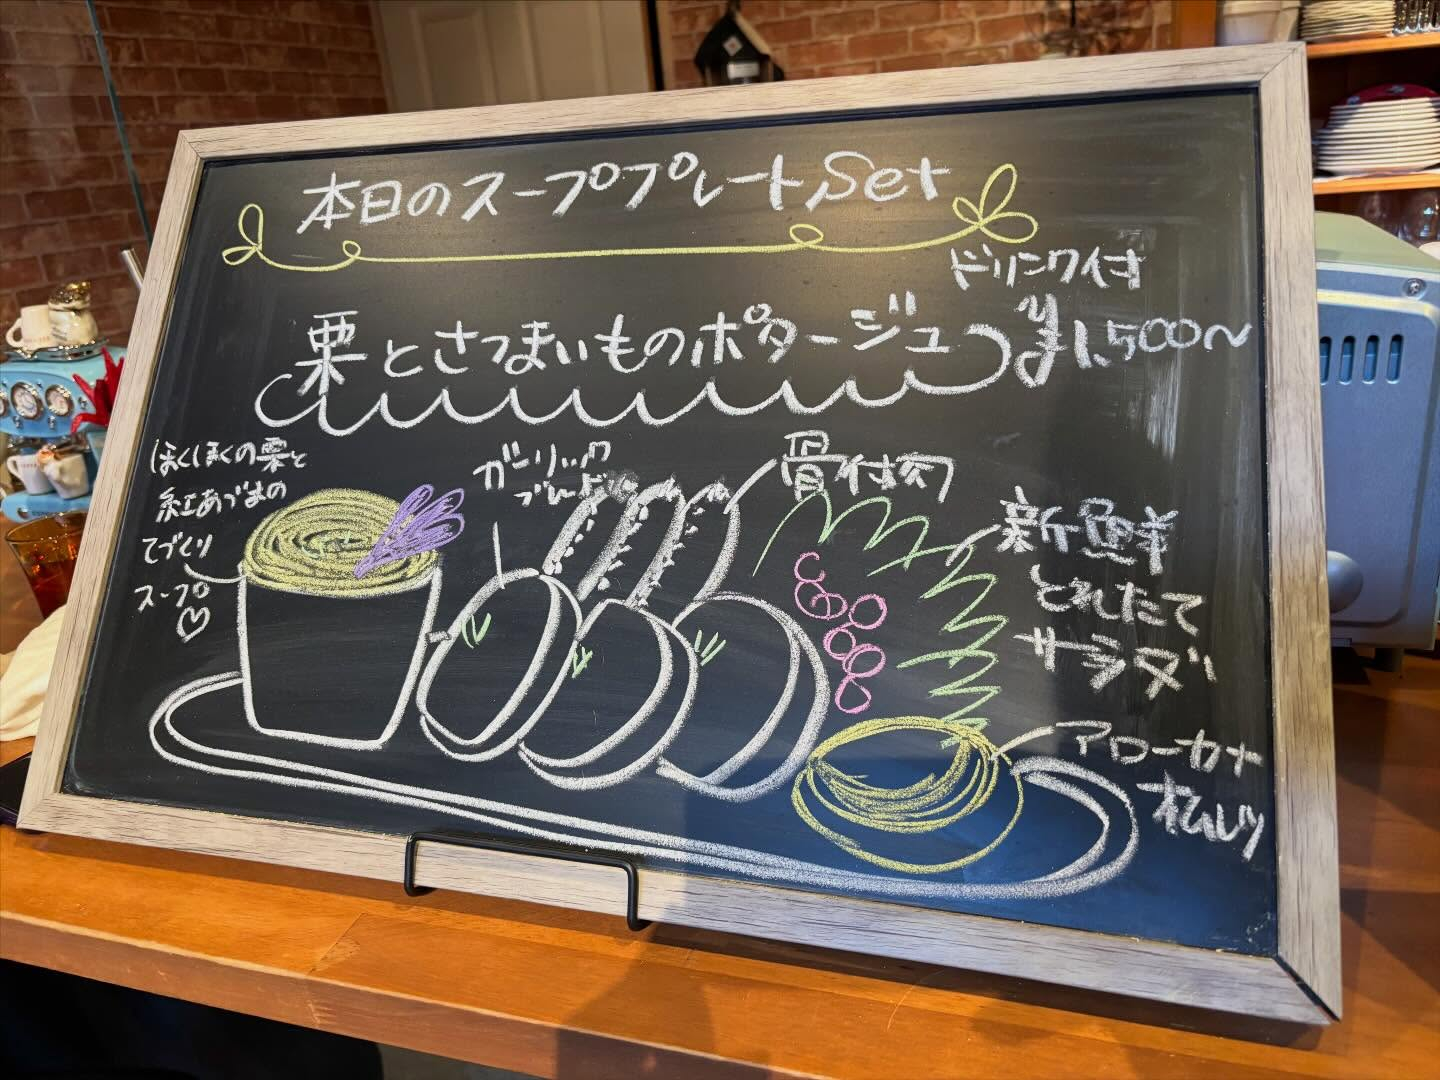 本日のスーププレートSet
ドリンク付
栗とさつまいものポタージュ ¥1,500〜
ほくほくの栗と
紅あづまの
てづくり
スープ♡
ガーリック
ブレッド
骨付肉
新鮮
とれたて
サラダ
アローカナ
オムレツ